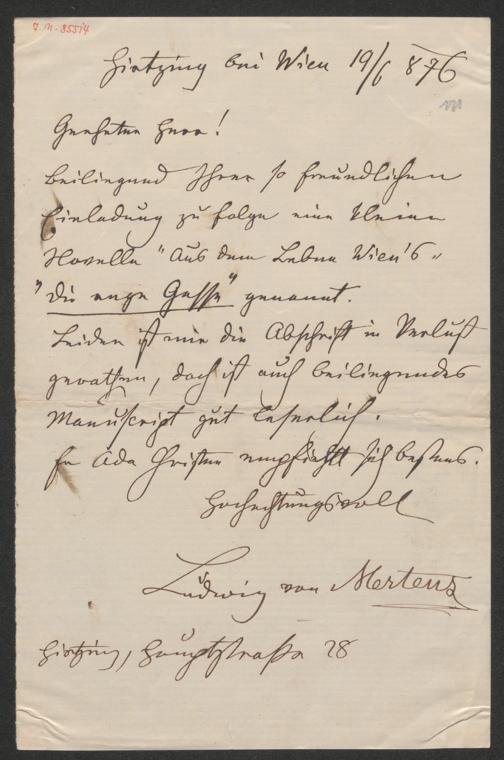 J.N. 85514
Hietzing bei Wien 19/6 876
171
Geehrter Herr!
Beiliegend Ihrer so freundlichen
Einladung zu folge eine kleine
Novelle "Aus dem Leben Wien's"
"die enge Gasse" genannt.
Leider ist mir die Abschrift in Verlust
gerathen, doch ist auch beiliegendes
Manuscript gut leserlich.
Fr Ada Christen empfiehlt sich bestens.
Hochachtungsvoll
Ludwig von Mertens
Hietzing, Hauptstrasse 28